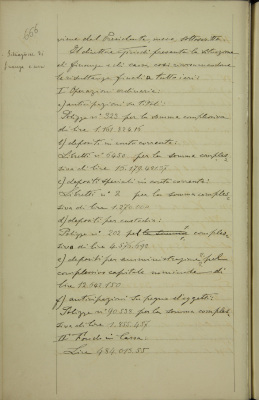 656
Situazione di
finanza e cassa
viene dal Presidente, messa sottoscritta.
Il direttore quindi presenta la situazione
di finanza e di cassa, così riassumendone
le risultanze finali a tutto ieri:
I Operazioni ordinarie
a) anticipazioni su titoli:
Polizze n° 322 per la somma complessiva
di lire
b) depositi in conto corrente:
Libretti n° 6450 per la somma comples
siva di lire
c) depositi speciali in conto corrente:
Libretti n° 2 per la somma comples
siva di lire 1.270.000
d) depositi per custodia:
Polizze n° 202 per la somma comples
siva di lire 4.576.692
e) depositi per amministrazione pel
complessivo capitale nominale di
lire 12.342.150
f) anticipazioni su pegno d'oggetti:
Polizze n° 90.532 per la somma comples
siva di lire 1.855.456
II Fondo in Cassa
Lire 484.012.55